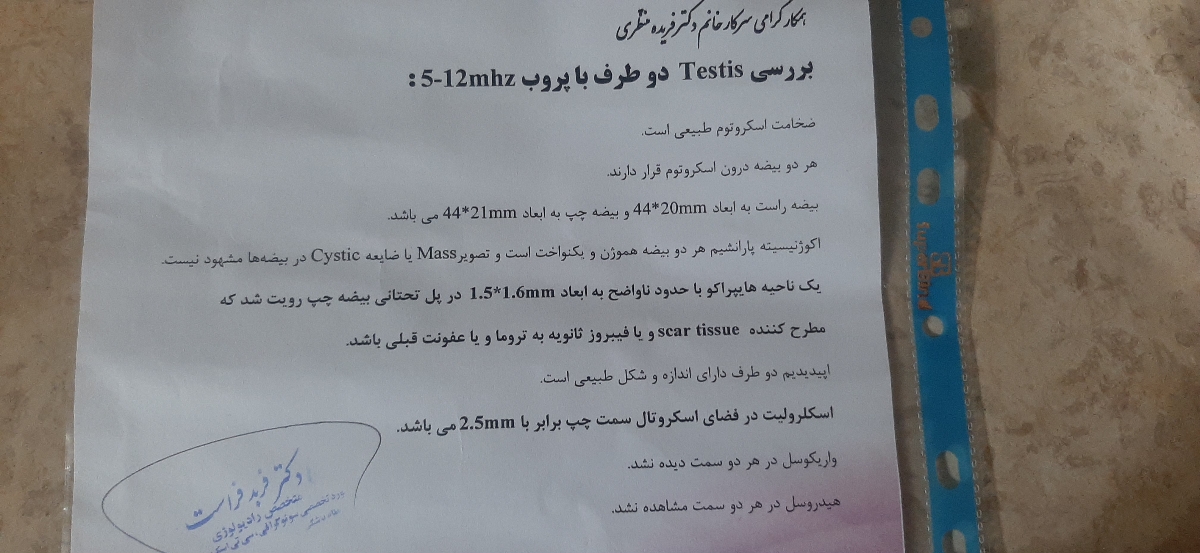 همکار گرامی سرکار خانم دکتر فریده منظری
بررسی Testis دو طرف با پروب 5-12mhz :
ضخامت اسکروتوم طبیعی است.
هر دو بیضه درون اسکروتوم قرار دارند.
بیضه راست به ابعاد 44*20mm و بیضه چپ به ابعاد 44*21mm می باشد.
اکوژنیسیته پارانشیم هر دو بیضه هموژن و یکنواخت است و تصویرMass یا ضایعه Cystic در بیضه‌ها مشهود نیست.
یک ناحیه هایپراکو با حدود ناواضح به ابعاد 1.5*1.6mm در پل تحتانی بیضه چپ رویت شد که
مطرح کننده scar tissue و یا فیبروز ثانویه به تروما و یا عفونت قبلی باشد.
اپیدیدیم دو طرف دارای اندازه و شکل طبیعی است.
اسکلرولیت در فضای اسکروتال سمت چپ برابر با 2.5mm می باشد.
واریکوسل در هر دو سمت دیده نشد.
هیدروسل در هر دو سمت مشاهده نشد.
دکتر فرید فراست
متخصص رادیولوژی
بورد تخصصی سونوگرافی، سی تی اسکن